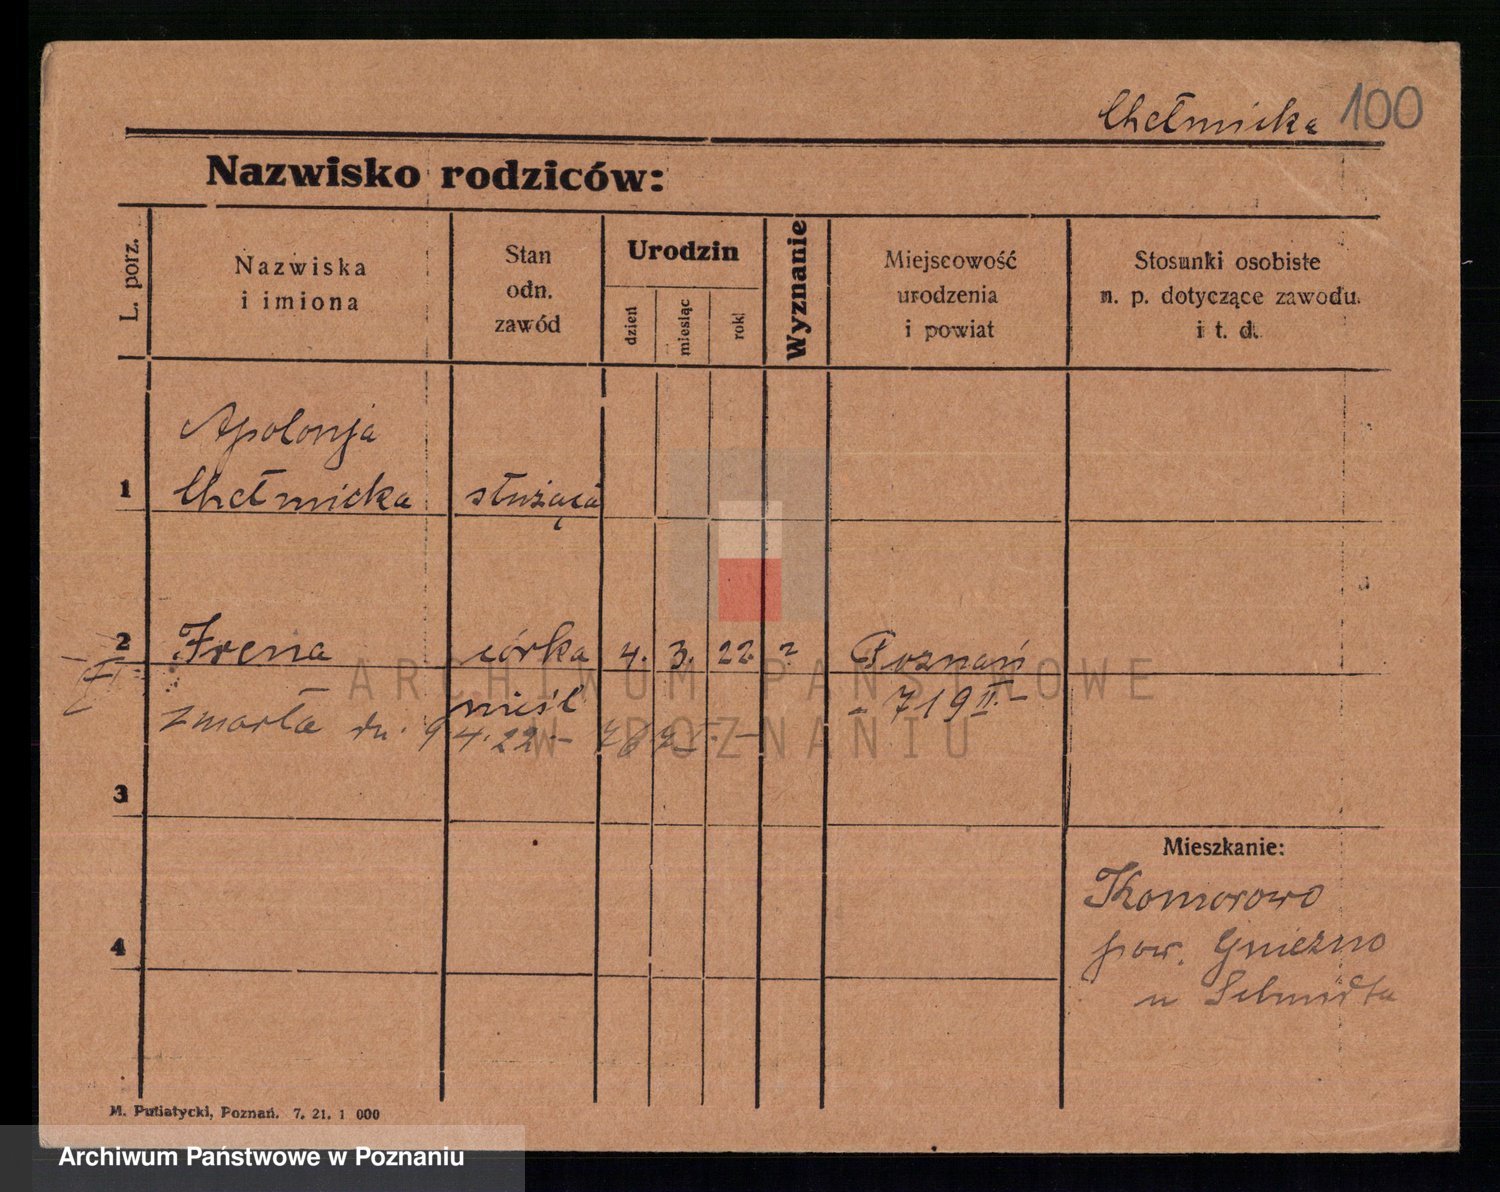 Chełmicka 100
Nazwisko rodziców:
L. porz.
Nazwiska
i imiona
Stan
odn.
zawód
Urodzin
dzień
miesiąc
rok
Wyznanie
Miejscowość
urodzenia
i powiat
Stosunki osobiste
n. p. dotyczące zawodu.
i t. d.
Apolonja
1 Chełmicka służąca
2 Irena córka 4. 3. 22. Poznań
nieśl - 719 II -
zmarła dn. 9 4. 22 -
3
Mieszkanie:
Komorowo
pow. Gniezno
u Schmidta
4
M. Putiatycki, Poznań. 7. 21. 1 000
ARCHIWUM PAŃSTWOWE
W POZNANIU
Archiwum Państwowe w Poznaniu